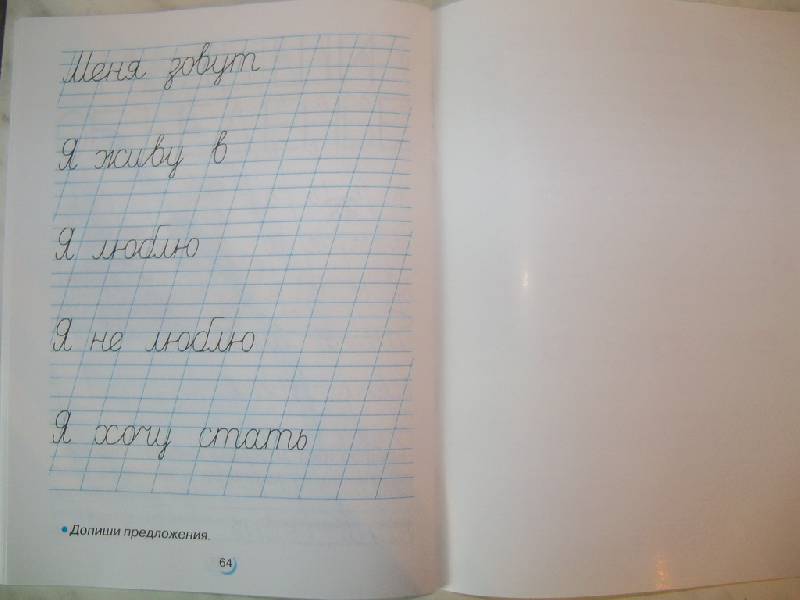 Меня зовут
Я живу в
Я люблю
Я не люблю
Я хочу стать
• Допиши предложения.
64